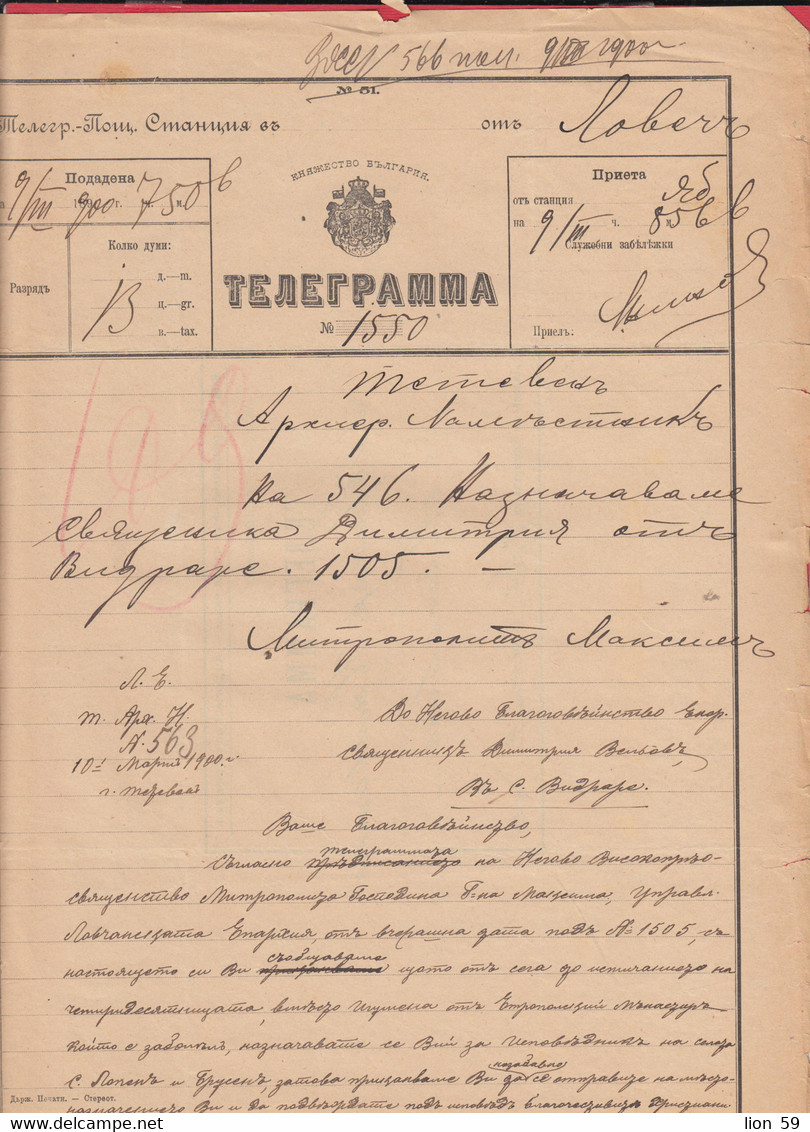 566 пол. 9/III 1900
№ 51.
Телегр.-Пощ. Станция въ отъ Ловечъ
Подадена
9/III 1900 г. 7 ч. 50 м.
Колко думи:
Разрядъ
13
д.—m.
ц.—gr.
в.—tax.
КНЯЖЕСТВО БЪЛГАРИЯ.
ТЕЛЕГРАММА
№ 1550
Приета
отъ станция Яб
на 9/III ч. 8 м. 56
Служебни забѣлѣжки
Приелъ:
Тетевенъ
Архиер. Намѣстникъ
На 546. Назначаваме
священика Димитрия отъ
Видраре. 1505. —
Митрополитъ Максимъ
Л. Е.
Т. Арх. Н.
№ 563
10й Мартъ 1900 г.
г. Тетевенъ
До Негово Благоговѣйнство Енор.
священникъ Димитрия Вельовъ,
Въ с. Видраре.
Ваше Благоговѣйнство,
телеграммата
Съгласно предписанието на Негово Високопрѣо-
священство Митрополита Господина Г-на Максима, Управл.
Ловчанската Епархия, отъ вчерашна дата подъ № 1505, съ
съобщаваме
настоящето си Ви щото отъ сега до истичанието на
четиридесятницата, вмѣсто Игумена отъ Етрополский Мънастиръ
който е заболѣлъ, назначавате се Вий за исповѣдникъ на селата
незабавно
с. Лопенъ и Брусенъ затова приканваме Ви да се отправите на мѣсто-
назначението Ви и да подвѣргате подъ исповѣдъ благочестивитѣ
Държ. Печатн. — Стереот.
lion 59